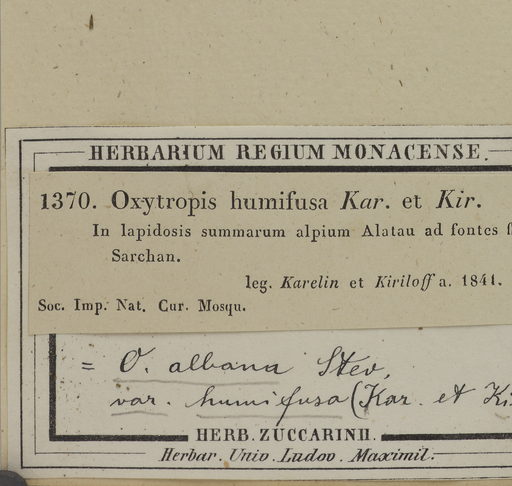 HERBARIUM REGIUM MONACENSE.
1370. Oxytropis humifusa Kar. et Kir.
In lapidosis summarum alpium Alatau ad fontes
Sarchan.
leg. Karelin et Kiriloff a. 1841.
Soc. Imp. Nat. Cur. Mosqu.
= O. albana Stev.
var. humifusa (Kar. et Ki
HERB. ZUCCARINII.
Herbar. Univ. Ludov. Maximil.